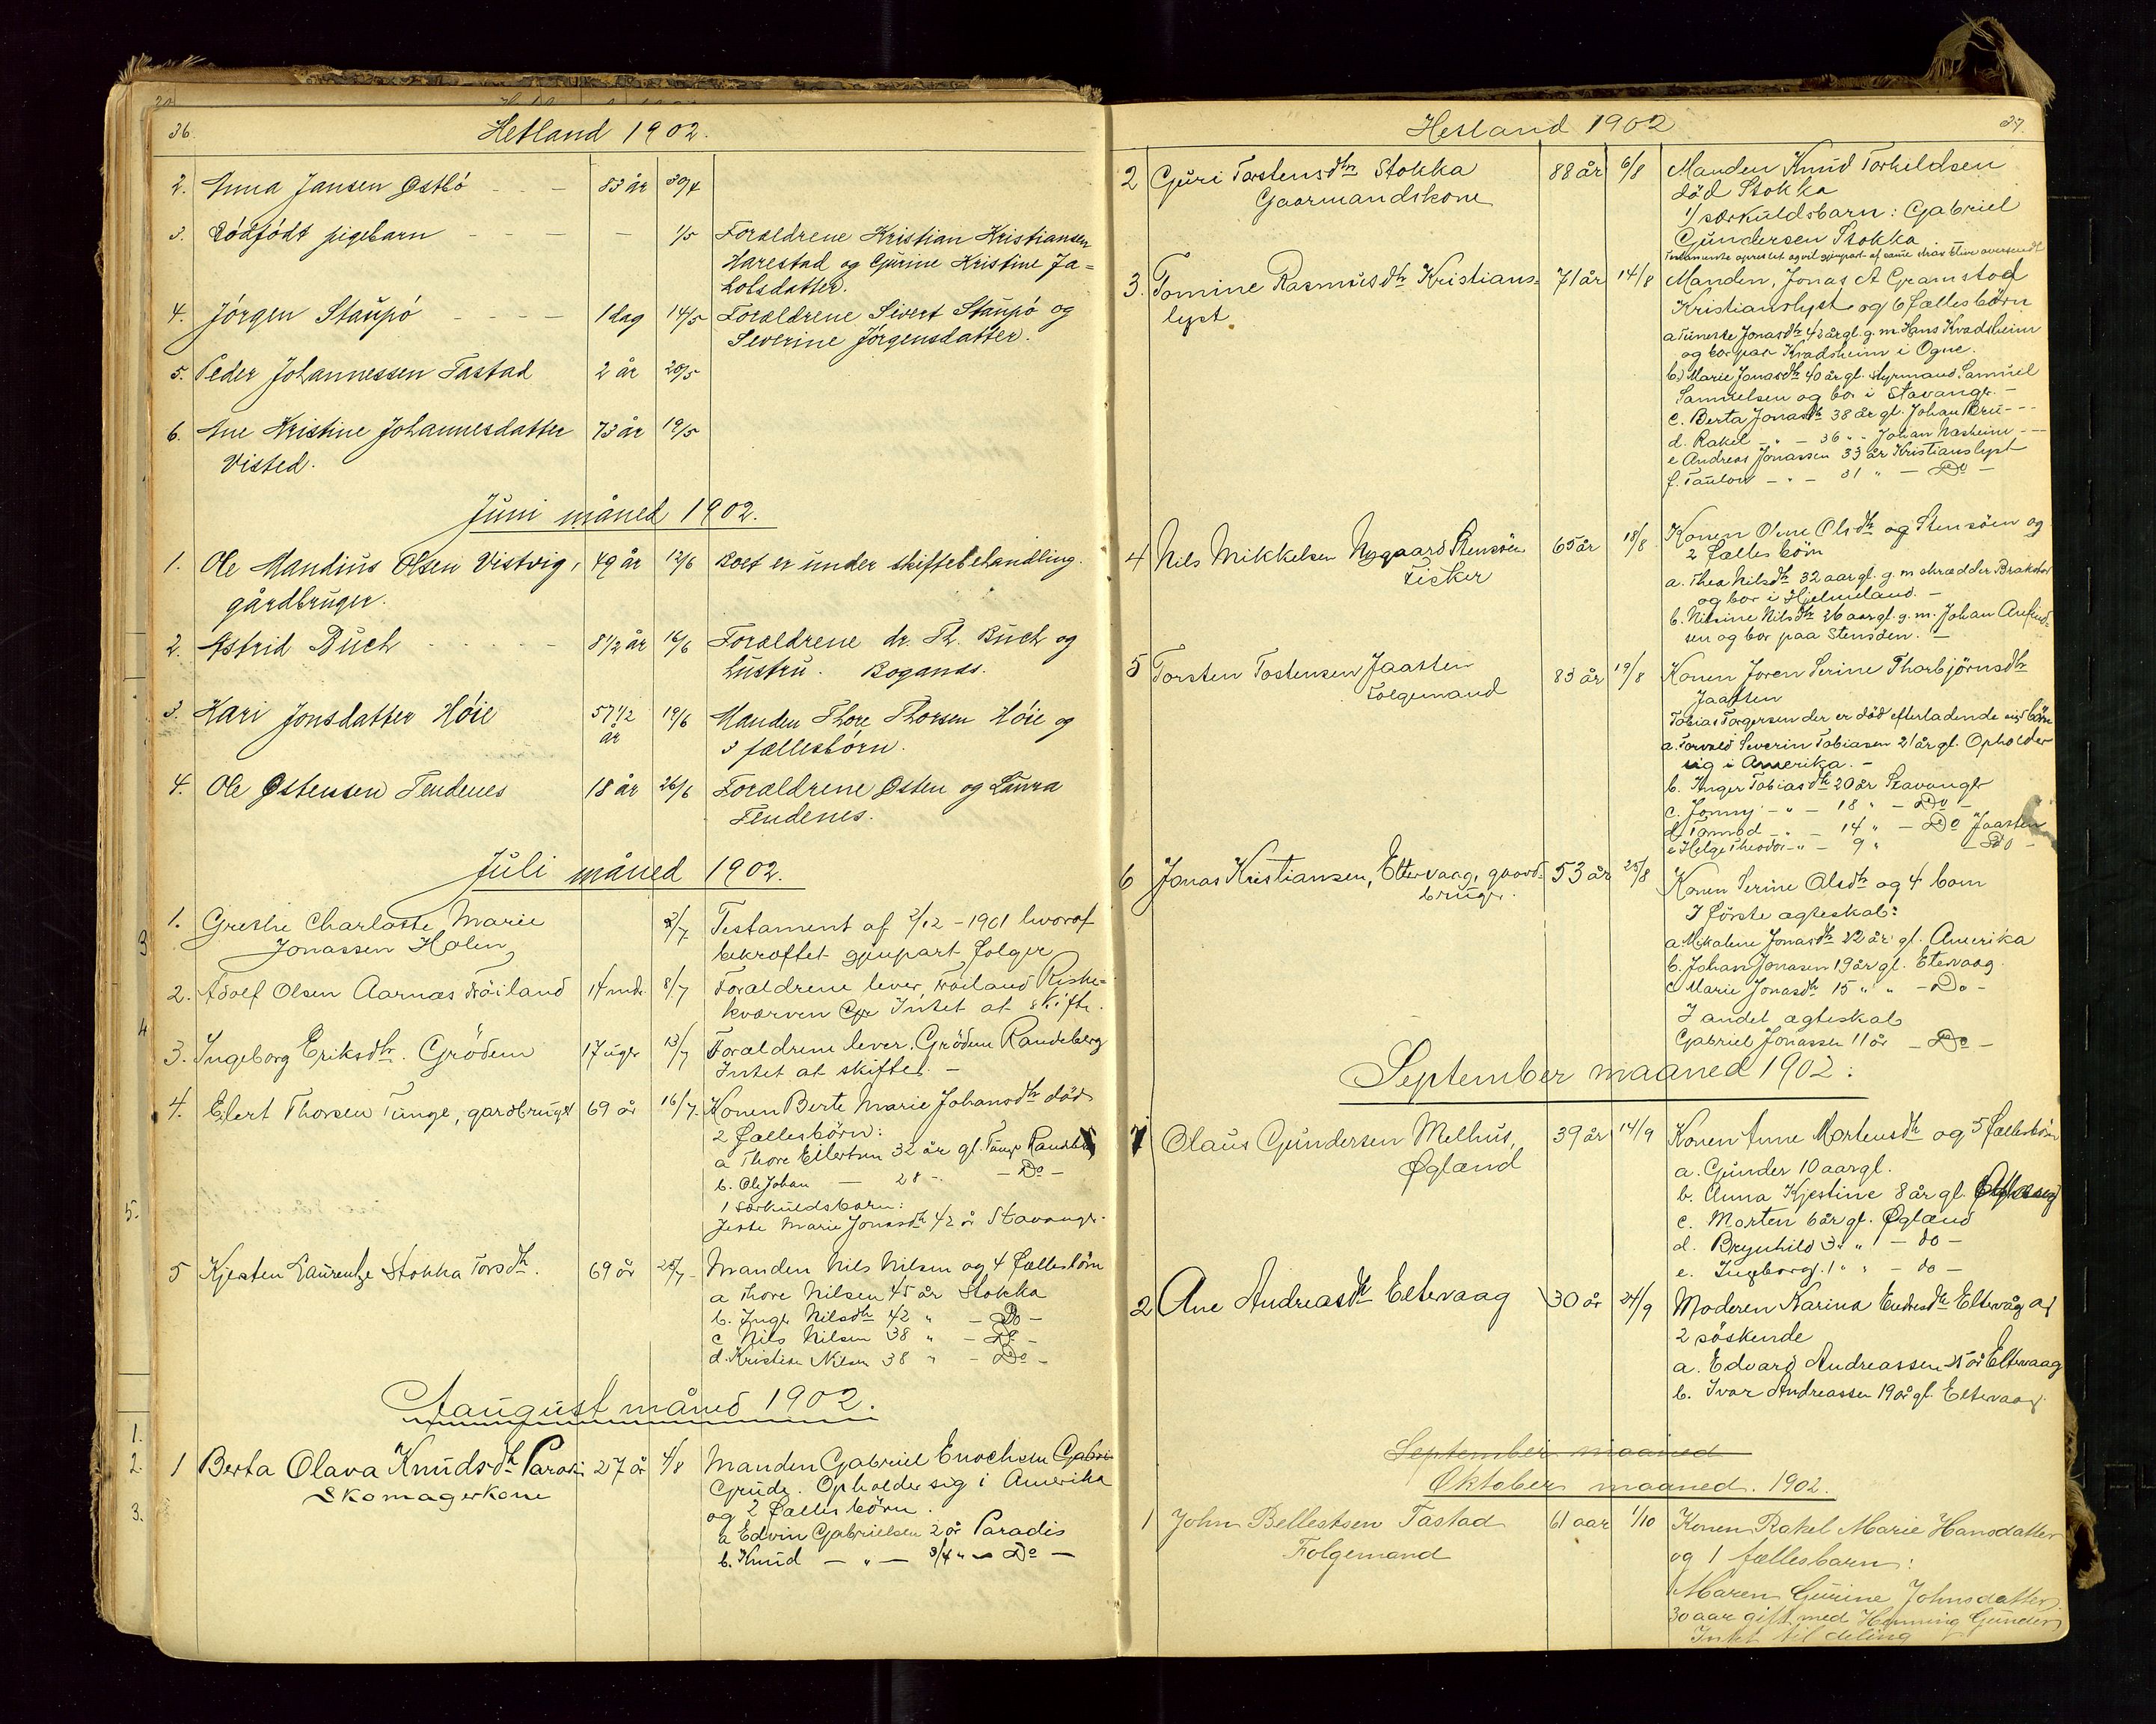 36. Hetland 1902.
2. Anna Jansen Østbö - - - 83 år 30/4
3. Dödfödt pigebarn - - - - 1/5 Forældrene Kristian Kristiansen
Harestad og Gurine Kristine Ja=
kobsdatter.
4. Jörgen Staupö - - - - 1 dag 14/5 Forældrene Sivert Staupö og
Severine Jörgensdatter.
5. Peder Johannessen Tastad 2 år 20/5
6. Ane Kristine Johannesdatter 73 år 19/5
Visted.
Juni måned 1902.
1. Ole Mandius Olsen Vistvig, 49 år 12/6 Boet er under skiftebehandling.
gårdbruger.
2. Astrid Buch - - - - - 8 1/2 år 16/6 Forældrene dr. Th. Buch og
hustru. Boganæs.
3. Kari Jonsdatter Höie 57 1/2 år 19/6 Manden Thore Thorsen Höie og
3 fællesbörn.
4. Ole Østensen Tendenes 18 år 26/6 Forældrene Østen og Laura
Tendenes.
Juli måned 1902.
1. Grethe Charlotte Marie 2/7 Testament af 2/12 - 1901 hvoraf
Jonassen Holen bekræftet gjenpart følger
2. Adolf Olsen Aarnæs Fröiland 14 mdr. 8/7 Forældrene lever, Fröiland Riske=
kværven Intet at skifte.
3. Ingeborg Eriksdtr. Grödem 17 uger 13/7 Forældrene lever. Grödem Randeberg
Intet at skifte. -
4. Eilert Thorsen Tunge, gardbruger 69 år 16/7. Konen Berte Marie Johansdtr död
2 fællesbörn:
a Thore Eilertsen 32 år gl. Tunge Randeb
b. Ole Johan - 28 - - Do -
1 særkuldsbarn:
Jette Marie Jonasdtr 42 år Stavanger.
5 Kjesten Laurentze Stokka Torsdtr. 69 år 25/7 Manden Nils Nilsen og 4 fællesbörn
a Thore Nilsen 45 år Stokka
b. Inger Nilsdtr 42 " - Do -
c Nils Nilsen 38 " - Do -
d. Kristine Nilsen 38 " - Do -
Aaugust måned 1902.
1 Berta Olava Knudsdtr Paradis 27 år 4/8 Manden Gabriel Enochsen Gabri
Skomagerkone Grude. Opholder sig i Amerika
og 2 fællesbörn.
a Edvin Gabrielsen 2 år Paradis
b. Knud - " - 3/4 " - Do -
Hetland 1902 37.
2 Guri Torstensdtr Stokka 88 år 6/8 Manden Knud Torkeldsen
Gaarmandskone död Stokka
1/ særkuldsbarn: Gabriel
Gundersen Stokka
3. Tomine Rasmusdtr Kristians- 71 år 14/8 Manden, Jonas A Gramstad
lyst Kristianslyst og 6 fællesbörn
a Jonasdtr 42 år gl. g. m Hans Kvadsheim
og bor paa Kvadsheim i Ogne.
b) Marie Jonasdtr 40 år gl. styrmand Samuel
Samuelsen og bor i Stavanger -
c. Berta Jonasdtr 38 år gl. Johan Bru - - -
d. Rakel - " - 36 " - Johan Næsheim - - -
e Andreas Jonassen 33 år Kristianslyst
f. - " - 31 " - Do -
4 Nils Mikkelsen Nygaard Stensöen 65 år 18/8 Konen Olene Olsdtr og Stensöen og
Fisker 2 fælles börn
a. Thea Nilsdtr 32 aar gl. g. m skrædder
og bor i Hjelmeland. -
b. Nilsine Nilsdtr 26 aar gl. g. m. Johan Anfind-
sen og bor paa Stensöen. -
5 Torsten Tostensen Jaasten 83 år 19/8 Konen Joren Serine Thorbjörnsdtr
Folgemand Jaatten
Tobias Torgersen der er död efterladende sig börn
a. Torvald Severin Tobiasen 21 år gl. Opholder
sig i Amerika. -
b. Inger Tobiasdtr 20 år Stavanger
c. Jonny - " - 18 " - Do -
d - " - 14 " - Do Jaasten
e Helge Theodor - " - 9 " - Do -
6 Jonas Kristiansen, Eltervaag, gaard- 53 år 25/8 Konen Serine Olsdtr og 4 barn
bruger. I förste ægteskab:
a. Mikaline Jonasdtr 22 år gl. Amerika
b. Johan Jonasen 19 år gl. Eltervaag.
c Marie Jonasdtr 15 " " - Do -
I andet ægteskab
Gabriel Jonassen 11 år - Do -
September maaned 1902:
1 Olaus Gundersen Melhus, 39 år 14/9 Konen Anne Mortensdtr og 5 fællesbörn
Øgland a. Gunder 10 aar gl.
b. Anna Kjestine 8 år gl.
c. Morten 6 år gl. Øgland
d. Brynhild 3 " " - do -
e. Ingeborg 1 " " - do -
2 Ane Andreasdtr Eltervaag 30 år 24/9 Moderen Karina Endresdtr Eltervåg og
2 söskende
a. Edvard Andreassen 25 år Eltervaag
b. Ivar Andreassen 19 år gl. Eltervaag.
September maaned
Oktober maaned. 1902.
1 John Bellestsen Tastad 61 aar 1/10 Konen Rakel Marie Hansdatter
Folgemand og 1 fællesbarn:
Maren Gurine Johnsdatter,
30 aar gift med Henning Gunder
Intet til deling